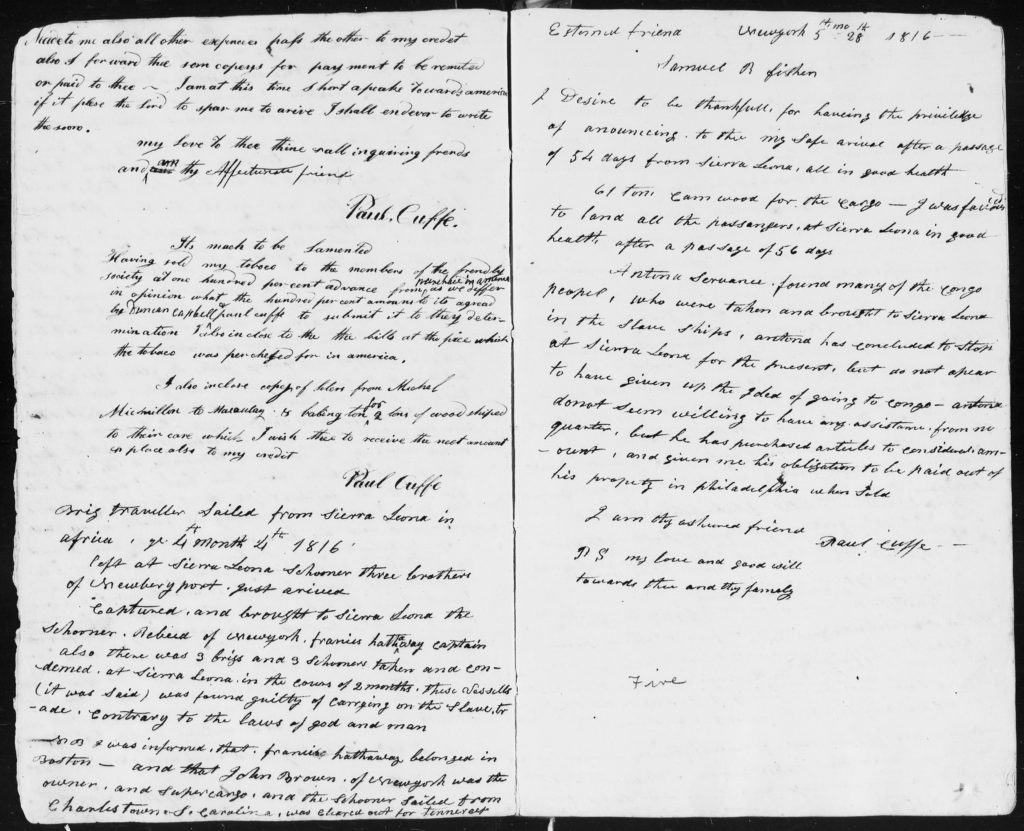 to me also all other expences pass the other to my credet
also I forward thee som copeys for payment to be remited
or paid to thee — I am at this time Short apeake towards america
if it plese the Lord to spar me to arive I shall endevor to write
thee soon.
my love to thee thine & all inquiring frends
and am thy Affectunate friend
Paul Cuffe.
Its much to be Lamented
Having sold my tobaco to the members of the frendly
society at one hundred per cent advance from purchace in america as we differ
in opinion what the hundred per cent amounts to its agread
by Duncan Capbell & paul cuffe to submit it to they deter-
mination I also inclose to the the bills at the price which
the tobaco was perchesed for in america.
I also inclose copey of leters from Michel
Micmillon to Macaulay & babington for 2 tons of wood shiped
to their care which I wish thee to receive the neet amount
& place also to my credit
Paul Cuffe
Brig traveller Sailed from Sierra Leona in
africa, ye 4th month 4th 1816
Left at Sierra Leona Schooner three brothers
of Newbery port. just arived
Captured, and brought to Sierra Leona the
Schooner. Rebeud of Newyork. francis hathaway captain
also there was 3 brigs and 3 Schooners taken and con-
demed. at Sierra Leona. in the cours of 2 months. these Vessells
(it was Said) was found guilty of carrying on the Slave, tr
-ade. contrary to the laws of god and man
NB I was informed, that. francis hathaway belonged in
Boston — and that John Brown. of Newyork was the
owner, and Supercargo, and the Schooner Sailed from
Charlstown S. Carolina, was cleared out for tenneref
Esteemed friend Newyork 5th mo 28th 1816 —
Samuel R fisher
I Desire to be thankfull, for haveing the privilidge
of anouncing. to the my Safe arival after a passage
of 54 days from Sierra Leona, all in good health
61 ton. Cam wood for the Cargo — I was favioured
to land all the passangers, at Sierra Leona in good
health, after a passage of 56 days
Antona Servance. found many of the Congo
peopel, who were taken and brought to Sierra Leona
in the Slave Ships, antona has concluded to Stop
at Sierra Leona for the present, but do not apear
to have given up the Idea of going to congo — antona
do not Seem willing to have any assistance. from no
quarter, but he has purchased articles to considerabl am-
-ount, and given me his obligation to be paid out of
his propety in philadelphia when Sold
I am thy ashured friend
Paul Cuffe —
P S my love and good will
towards thee and thy famely
Five